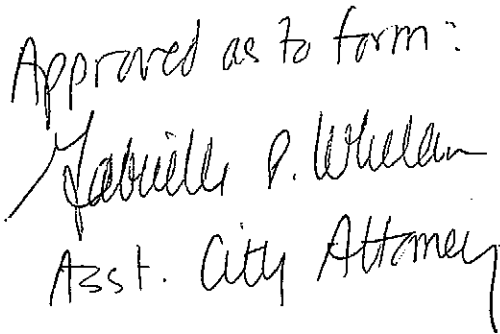 Approved as to form:
Gabrielle P. Whelan
Asst. City Attorney